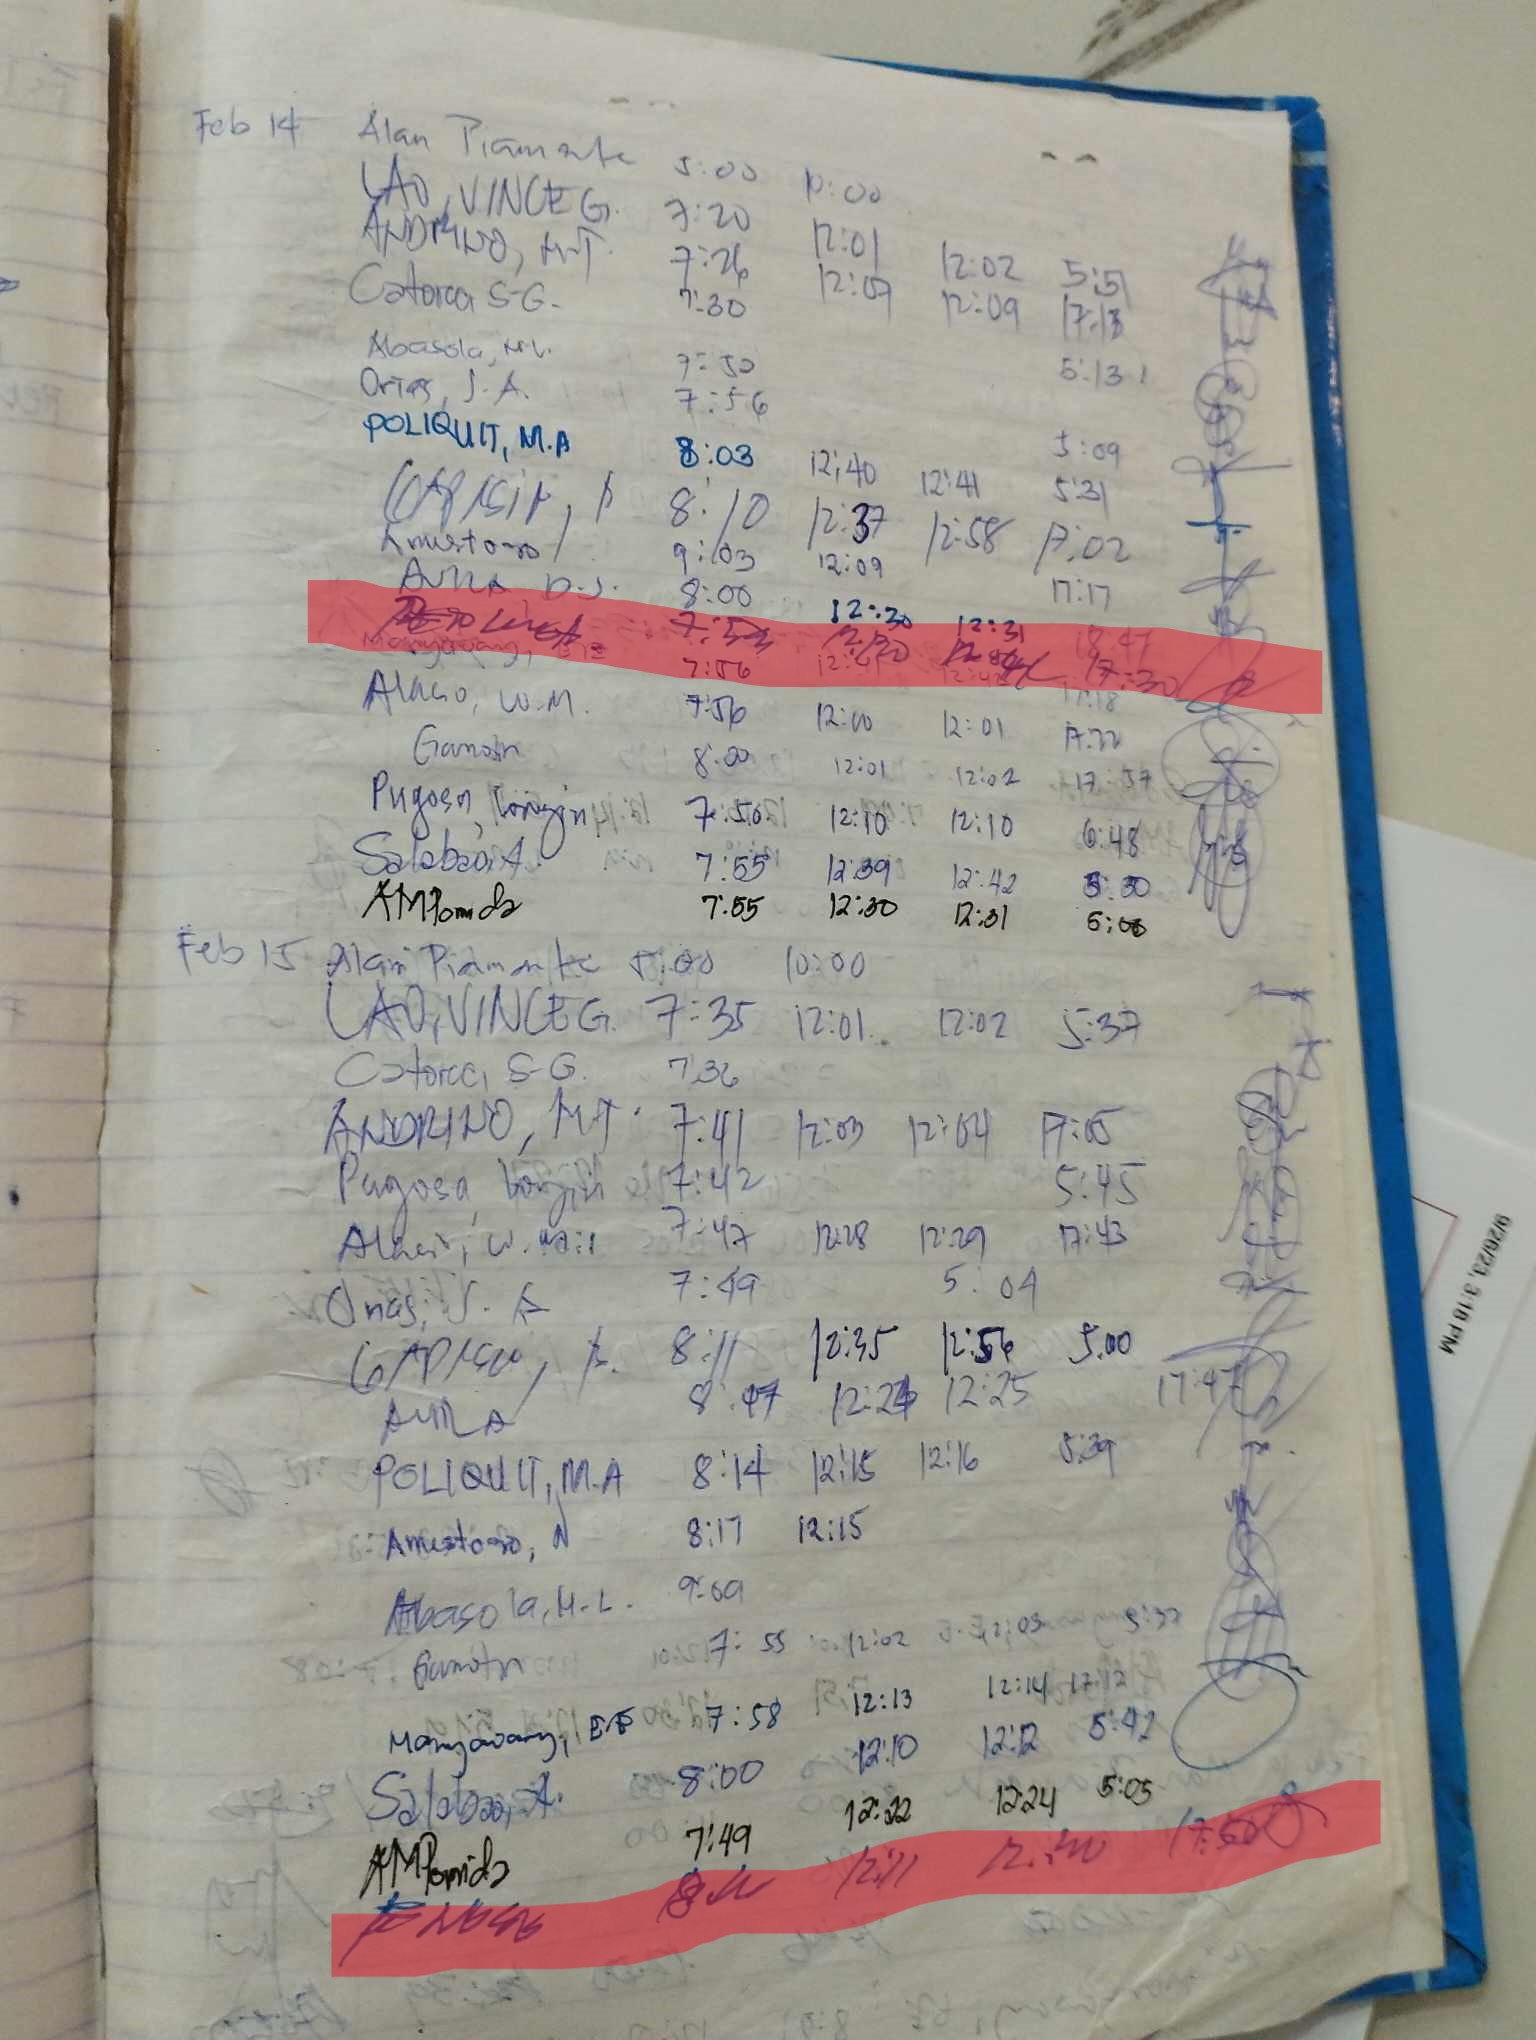 Feb 14 Alan Piamonte 5:00 10:00
LAO, VINCE G. 7:20 12:01 12:02 5:51
ANDRINO, M.T. 7:26 12:09 12:09 17:13
Catorce, S-G. 7:30 5:13
Abasola, M.L. 7:50
Orias, J. A. 7:56 5:09
POLIQUIT, M.A 8:03 12:40 12:41 5:31
8:10 12:37 12:58 17:02
Amestoso 9:03 12:09 17:17
AVILA D.J. 8:00 12:30 12:31 18:47
12:30 17:30
Mangavang, 7:56 17:18
Alacio, W.M. 7:56 12:00 12:01 17:22
Ganotn 8:00 12:01 12:02 17:57
Pugosa, Longin 7:50 12:10 12:10 6:48
Salabao, A. 7:55 12:39 12:42 5:30
AMPomida 7:55 12:30 12:31 5:08
Feb 15 Alan Piamonte 5:00 10:00
LAO, VINCE G. 7:35 12:01 12:02 5:37
Catorce, S-G. 7:36
ANDRINO, M.T. 7:41 12:03 12:04 17:05
Pugosa, Longin 7:42 5:45
Alacio, W. 7:47 12:28 12:29 17:43
Orias, J. A 7:49 5:04
8:11 12:35 12:56 5:00
AVILA 8:47 12:24 12:25 17:47
POLIQUIT, M.A 8:14 12:15 12:16 5:39
Amestoso, N 8:17 12:15
Abasola, M.L. 9:09
Ganotn 7:55 12:02 12:03 5:32
Mangavang, E.F 7:58 12:13 12:14 17:12
Salabao, A. 8:00 12:10 12:12 5:42
AMPomida 7:49 12:22 12:24 5:05
12:11 17:50
9/26/23, 3:18 PM